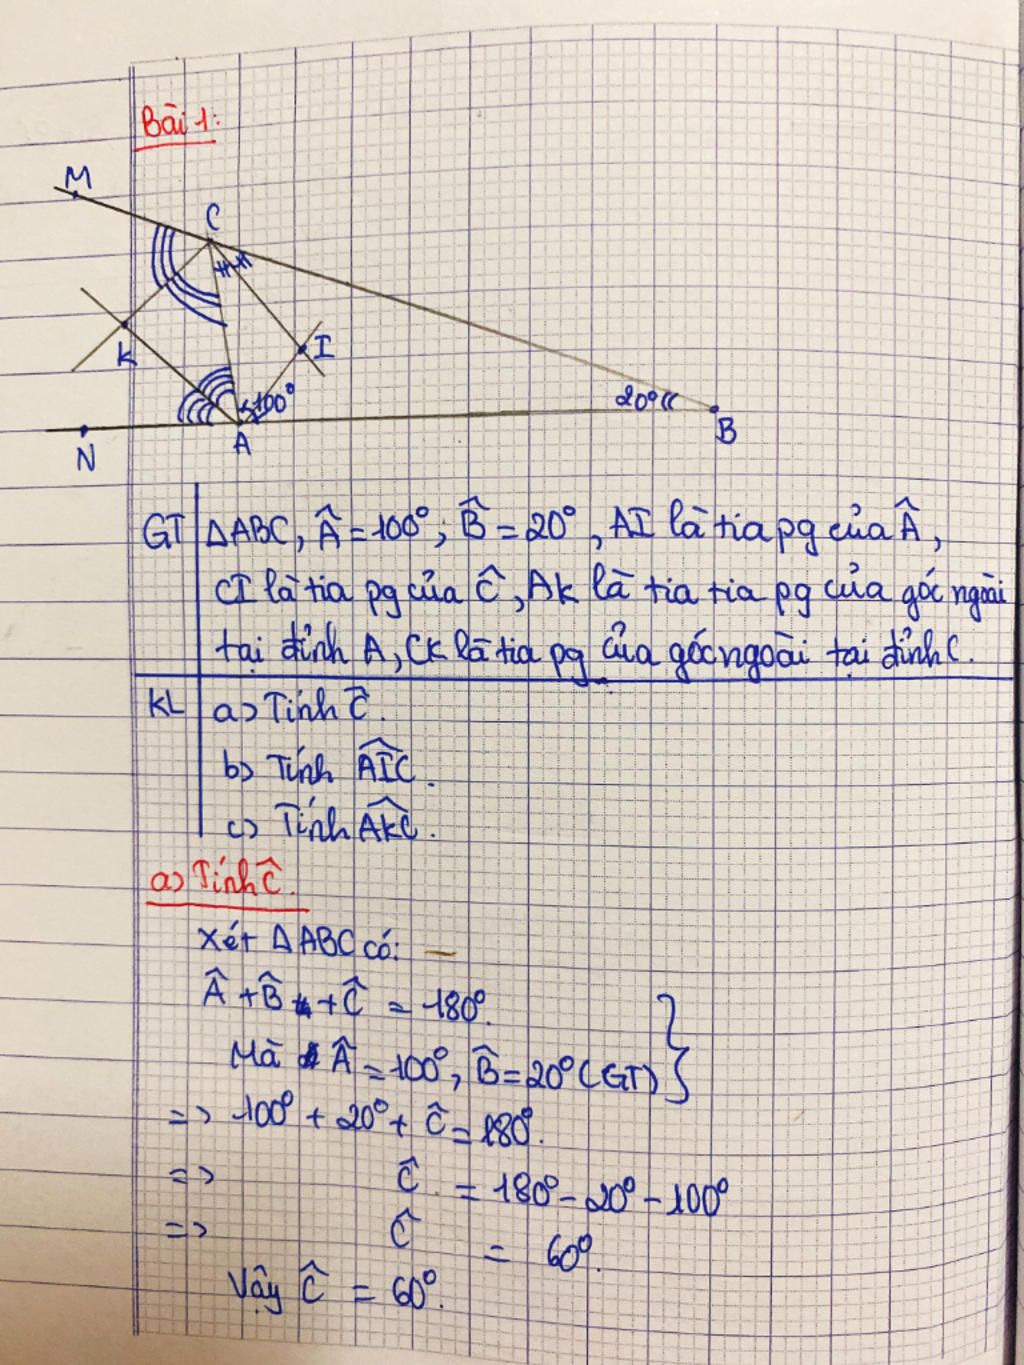 Bài 1:
M
C
K
I
100°
20°
N
A
B
GT ΔABC, Â = 100°, B̂ = 20°, AI là tia pg của Â,
CI là tia pg của Ĉ, AK là tia tia pg của góc ngoài
tại đỉnh A, CK là tia pg của góc ngoài tại đỉnh C.
KL a) Tính Ĉ.
b) Tính AIC.
c) Tính AKC.
a) Tính Ĉ.
Xét ΔABC có:
Â + B̂ + Ĉ = 180°.
Mà Â = 100°, B̂ = 20° (GT) }
=> 100° + 20° + Ĉ = 180°.
=> Ĉ = 180° - 20° - 100°
=> Ĉ = 60°.
Vậy Ĉ = 60°.